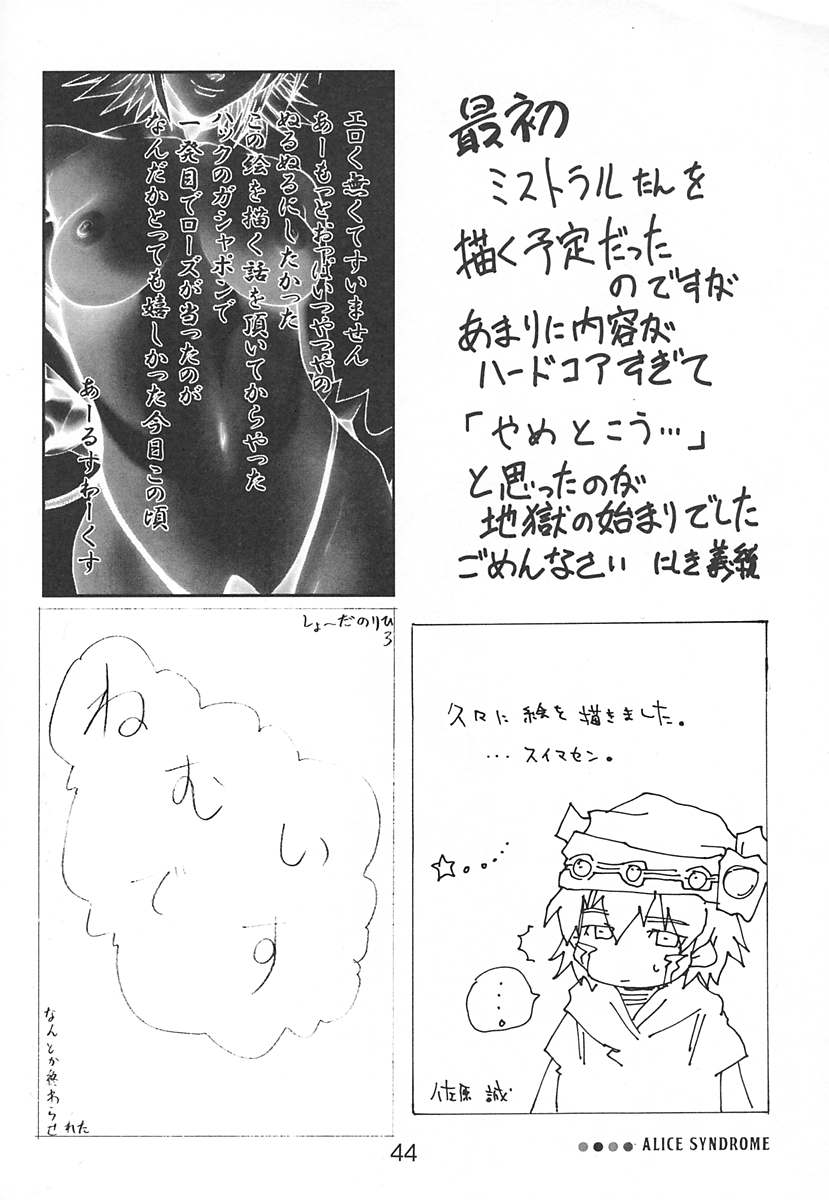 最初
ミストラルたんを
描く予定だった
のですが
あまりに内容が
ハードコアすぎて
「やめとこう…」
と思ったのが
地獄の始まりでした
ごめんなさい にしき義統
エロく無くてすいません
あーもっとおっぱいつやつやの
ぬるぬるにしたかった
この絵を描く話を頂いてからやった
ハックのガシャポンで
一発目でローズが当ったのが
なんだかとっても嬉しかった今日この頃
あーるすわーくす
久々に絵を描きました。
…スイマセン。
…。
佐原 誠
しょ〜だのりひ
ろ
ねむい
です
なんとか終わらせ
れた
44
ALICE SYNDROME